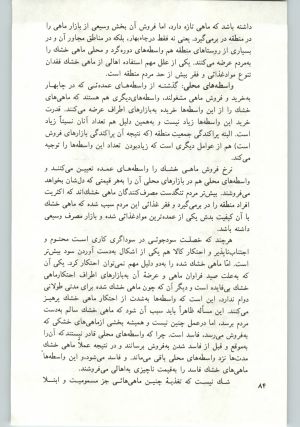 داشته باشد که ماهی تازه دارد، اما فروش آن بخش وسیعی از بازار ماهی را
در منطقه در برمی‌گیرد. یعنی نه فقط درچاه‌بهار، بلکه در مناطق مجاور آن و در
بسیاری از روستاهای منطقه هم واسطه‌های دوره‌گرد و محلی ماهی خشک را
به‌مردم عرضه می‌کنند. یکی از علل مهم استفاده اهالی از ماهی خشک فقدان
تنوع موادغذائی و فقر بیش از حد مردم منطقه است.
واسطه‌های محلی: گذشته از واسطه‌های عمده‌ئی که در چابهار
به‌خرید و فروش ماهی مشغولند، واسطه‌های‌دیگری هم هستند که ماهی‌های
خشک را از این واسطه‌ها خریده به‌بازارهای اطراف عرضه می‌کنند. قدرت
خرید این واسطه‌ها زیاد نیست و به‌همین دلیل هم تعداد آنان نسبتاً زیاد
است. البته پراکندگی جمعیت منطقه (که نتیجه آن پراکندگی بازارهای فروش
است) هم از عوامل دیگری است که زیادبودن تعداد این واسطه‌ها را توجیه
می‌کند.
نرخ فروش ماهی خشک را واسطه‌های عمده تعیین می‌کنند و
واسطه‌های محلی هم در بازارهای محلی آن را به‌هر قیمتی که دل‌شان بخواهد
می‌فروشند. بیش‌تر مردم تنگدست مصرف‌کنندگان ماهی خشک‌اند که اکثریت
افراد منطقه را در برمی‌گیرد و فقر غذائی این مردم سبب شده که ماهی خشک
با آن کیفیت بدش یکی از عمده‌ترین موادغذائی شده و بازار مصرف وسیعی
داشته باشد.
هرچند که خصلت سودجوئی در سوداگری کاری است محتوم و
اجتناب‌ناپذیر و احتکار کالا هم یکی از اشکال به‌دست آوردن سود بیش‌تر
است. امّا ماهی خشک شده را به‌دو دلیل مهم نمی‌توان احتکار کرد. یکی آن
که به‌علت صید فراوان ماهی و عرضهٔ آن به‌بازارهای اطراف احتکارماهی
خشک بی‌فایده است و دیگر آن که چون ماهی خشک شده برای مدتی طولانی
دوام ندارد، این است که واسطه‌ها به‌شدت از احتکار ماهی خشک پرهیز
می‌کنند. این مسأله ظاهراً باید سبب آن شود که ماهی خشک سالم به‌دست
مردم برسد، اما درعمل چنین نیست و همیشه بخشی ازماهی‌های خشکی که
به‌فروش می‌رسد، فاسد است. چرا که واسطه‌های محلی قادر نیستندکه آن‌را
به‌موقع و قبل از فاسد شدن به‌فروش برسانند و در نتیجه عملاً ماهی خشک
مدت‌ها نزد واسطه‌های محلی باقی می‌ماند. و فاسد می‌شود.و این واسطه‌ها
ماهی‌های خشک فاسد را به‌قیمت ناچیزی به‌اهالی می‌فروشند.
شک نیست که تغذیهٔ چنین ماهی‌هائی جز مسمومیت و ابتلا
۸۴